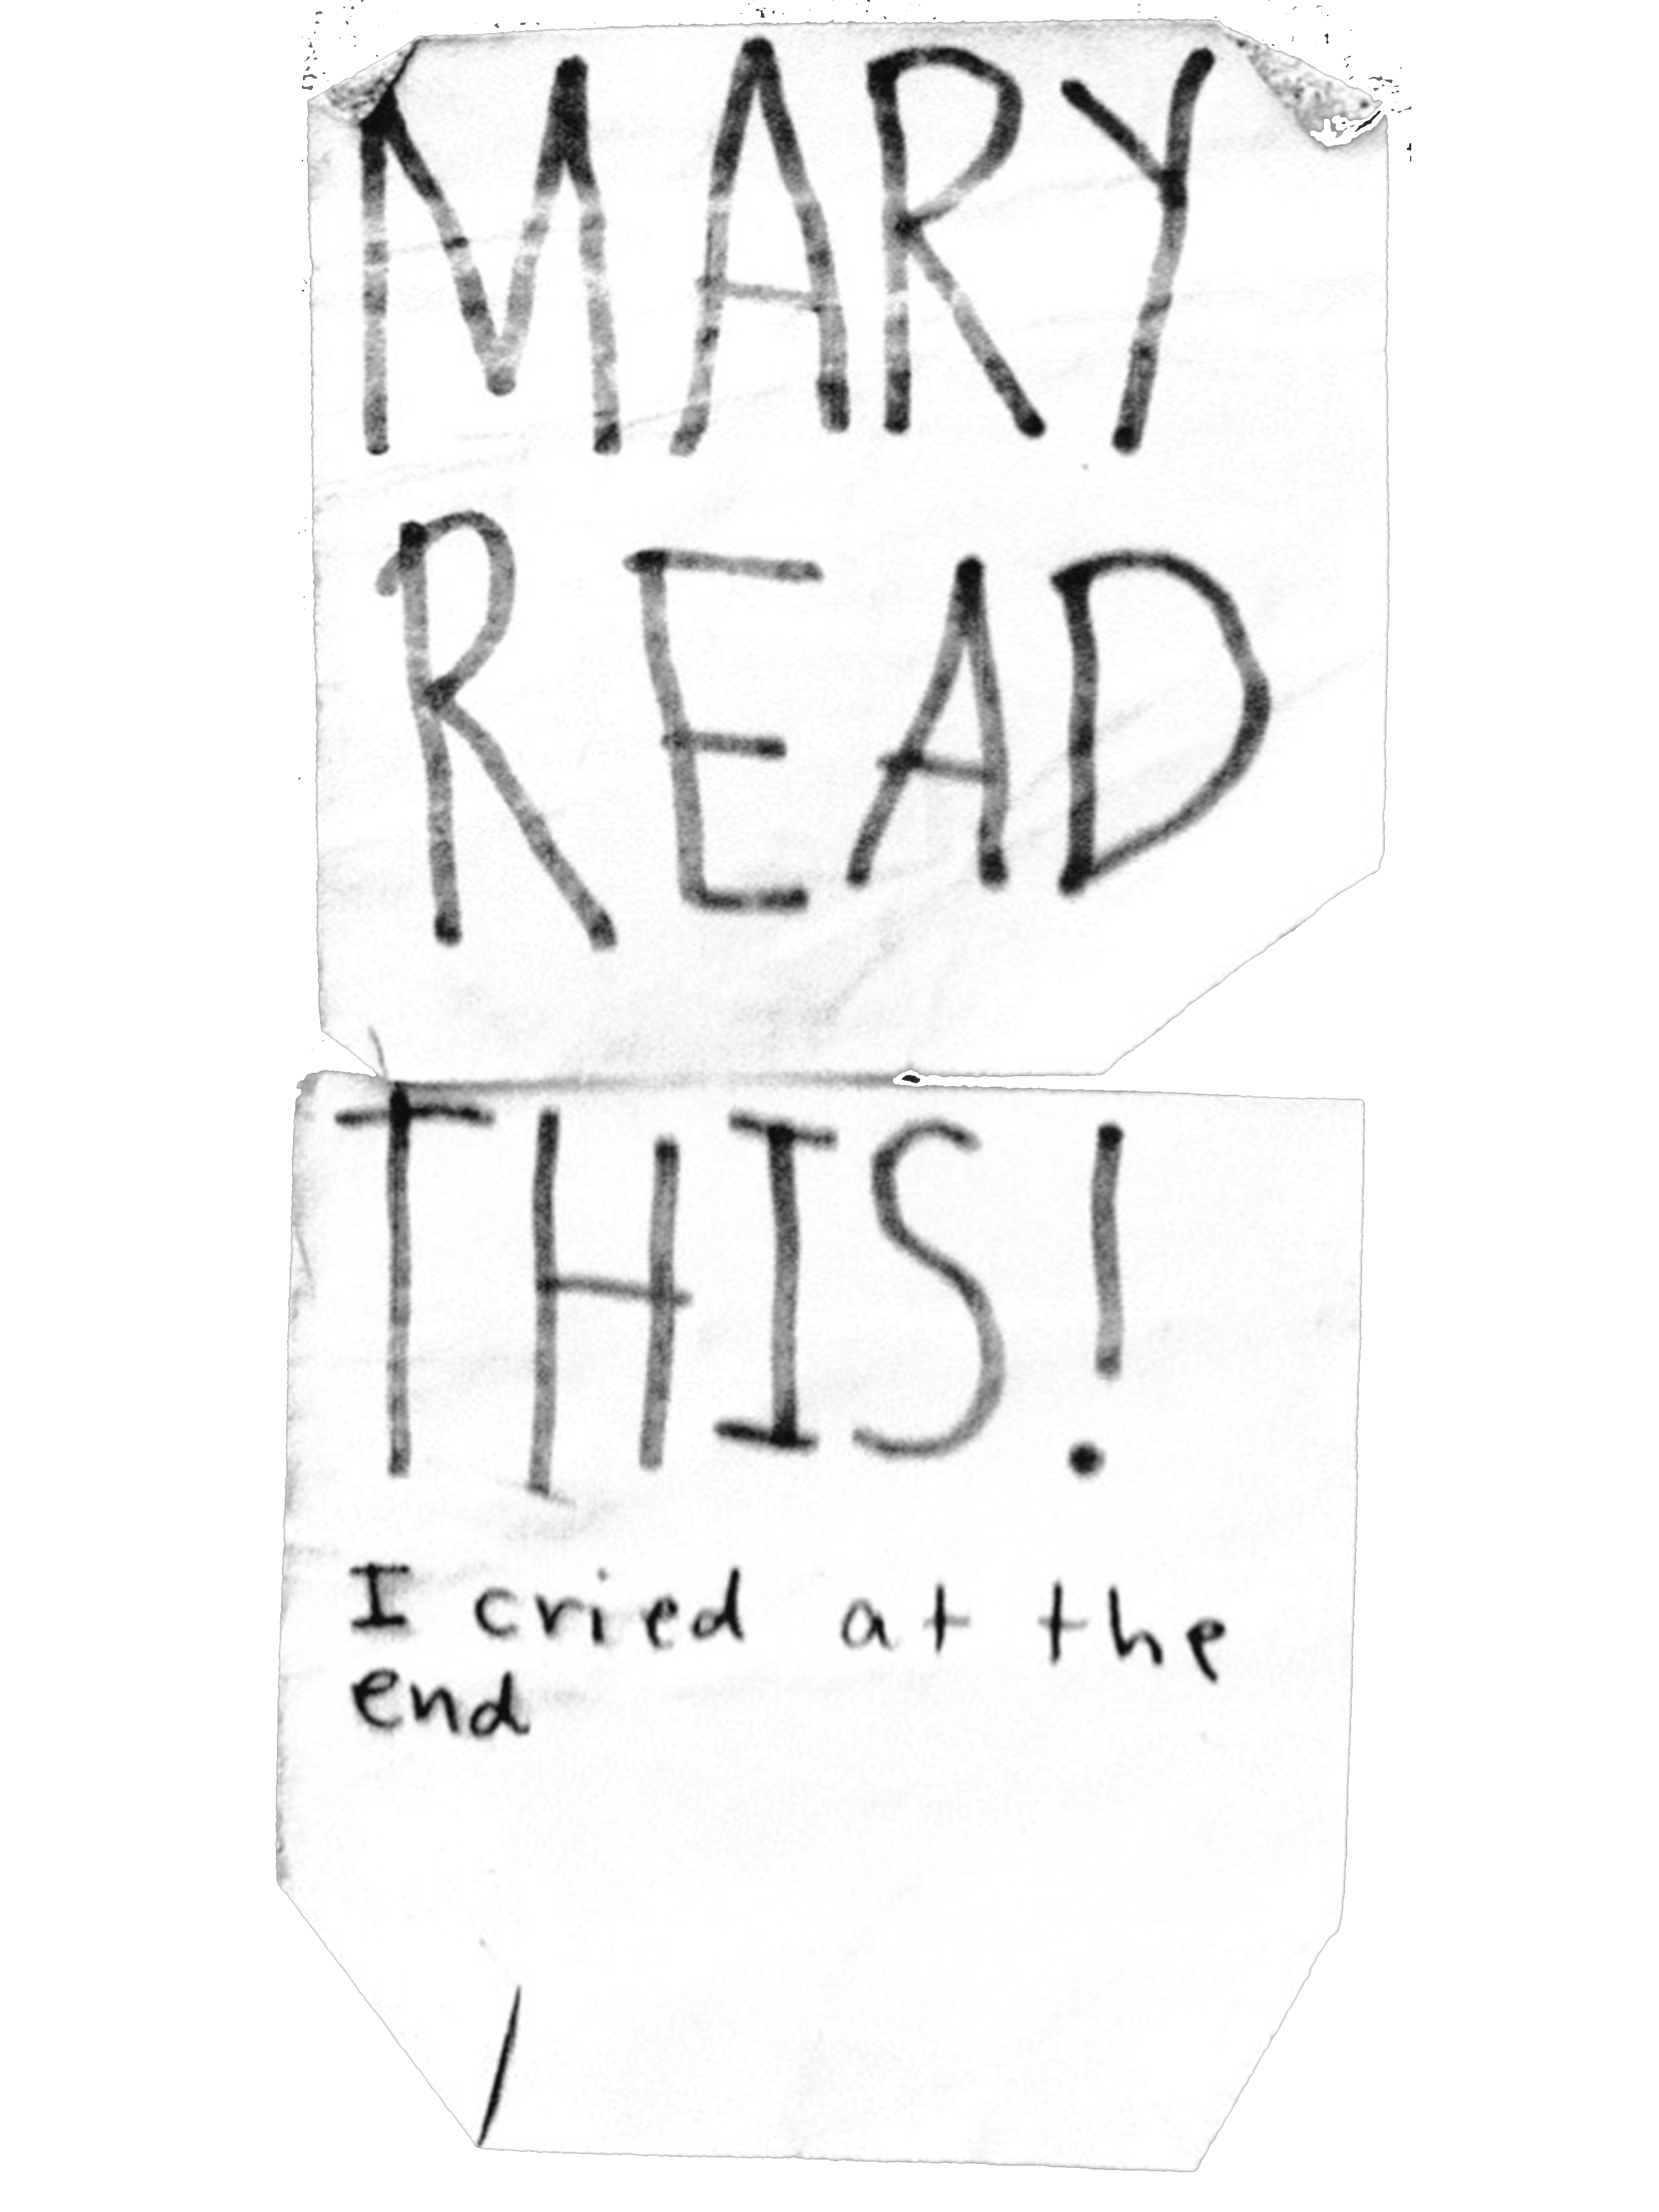 MARY
READ
THIS!
I cried at the
end